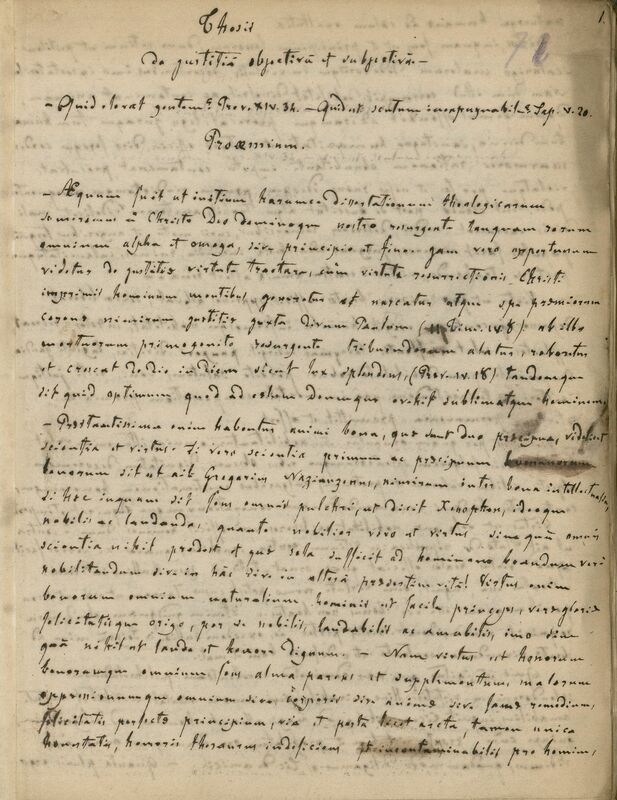 1.
Thesis
72
de justitiâ objectivâ et subjectivâ.—
— Quid elevat gentem? Prov. XIV. 34. — Quid est scutum inexpugnabile? Sap. V. 20.
Proœmium.
— Æquum fuit ut initium harumce dissertationum theologicarum
sumeremus à Christo Deo Dominoque nostro resurgente tanquam rerum
omnium alpha et omega, sive principio et fine. Jam vero opportunum
videtur de justitiæ virtute tractare, cùm virtute resurrectionis Christi
imprimis hominum mentibus generetur et nascatur atque spe præmiorum
coronæ nimirum justitiæ juxta divum Paulum (II Tim. IV. 8) ab illo
mortuorum primogenito resurgente tribuendorum alatur, roboretur
et crescat de die in diem sicut lux splendens, (Prov. IV. 18) tandemque
sit quid optimum quod ad cœlum denique evehit sublimatque hominem.
— Præstantissima enim habentur animi bona, quæ sunt duo præcipua, videlicet
scientia et virtus. Si vero scientia primum ac præcipuum
bonorum sit ut ait Gregorius Nazianzenus, nimirum inter bona intellectualia,
si hæc inquam sit fons omnis pulchri, ut dicit Xenophon, ideoque
nobilis ac laudanda, quanto nobilior vero est virtus sine quâ omnis
scientia nihil prodest et quæ sola sufficit ad hominem beandum verè
nobilitandum sive in hâc sive in alterâ præsertim vitâ! Virtus enim
bonorum omnium naturalium hominis est facile princeps, veræ gloriæ
felicitatisque origo, per se nobilis, laudabilis ac amabilis, imo sine
quâ nihil est laude et honore dignum. — Nam virtus est honorum
bonorumque omnium fons alma parens et supplementum, malorum
oppressionumque omnium sive corporis sive animæ sive famæ remedium,
felicitatis perfectæ principium, via et porta licet arcta, tamen unica
honestatis, honoris thesaurus indeficiens et incontaminabilis pro homine,